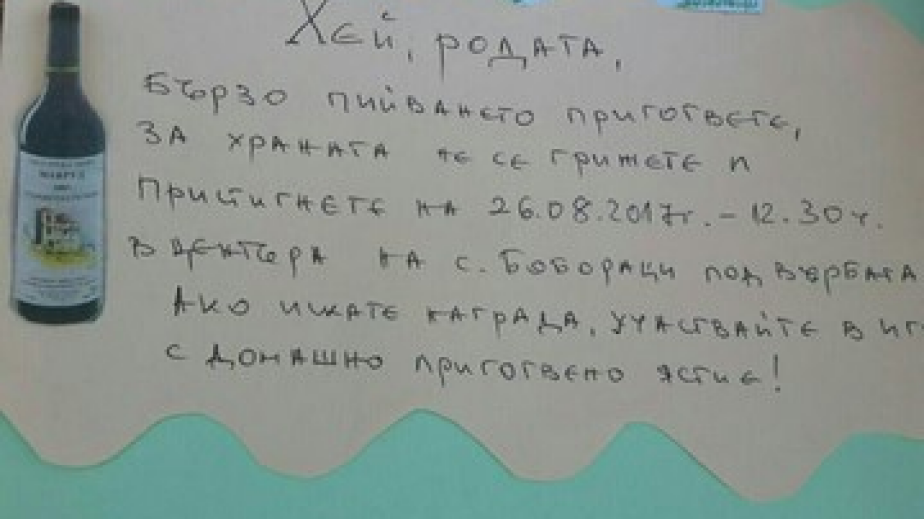 Хей, родата,
Бързо пийването пригответе,
за храната не се грижете и
пристигнете на 26.08.2017г. – 12.30ч.
в центъра на с. Бобораци под върбата
Ако искате награда, участвайте в
с домашно приготвено ястие!
МАВРУД